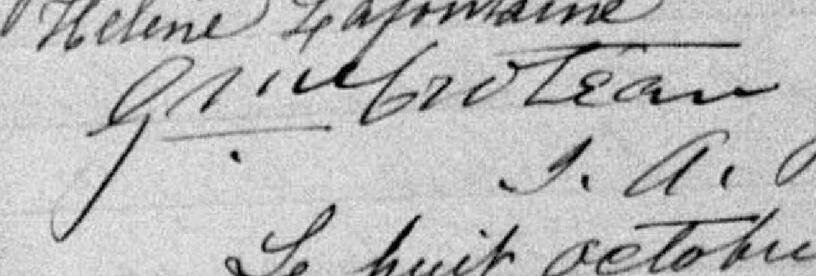 Helene Lafontaine
Croteau
J. A.
Le huit octobre